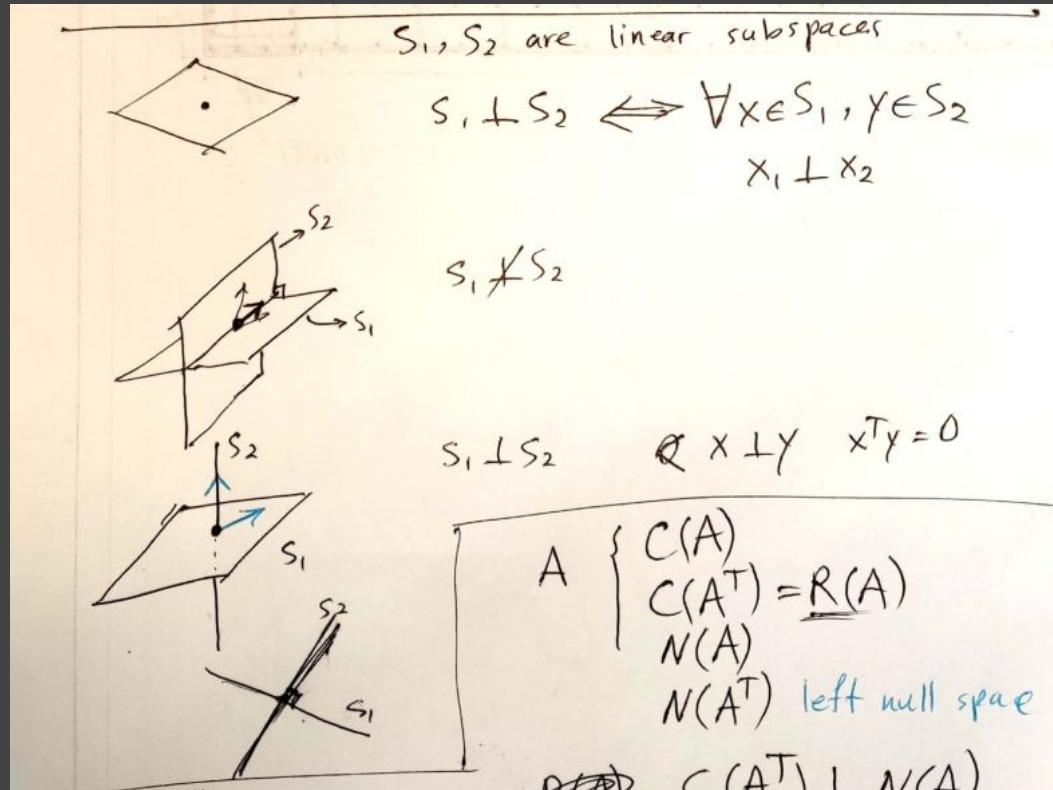 S₁, S₂ are linear subspaces
S₁ ⊥ S₂ ⟺ ∀x∈S₁, y∈S₂
x₁ ⊥ x₂
S₂
S₁ ⊥̸ S₂
S₁
S₂
S₁ ⊥ S₂ x ⊥ y xᵀy = 0
S₁
A { C(A)
C(Aᵀ) = R(A)
N(A)
N(Aᵀ) left null space
S₂
S₁
C(Aᵀ) ⊥ N(A)